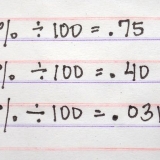 % ÷ 100 = .75
% ÷ 100 = .40
% ÷ 100 = .031